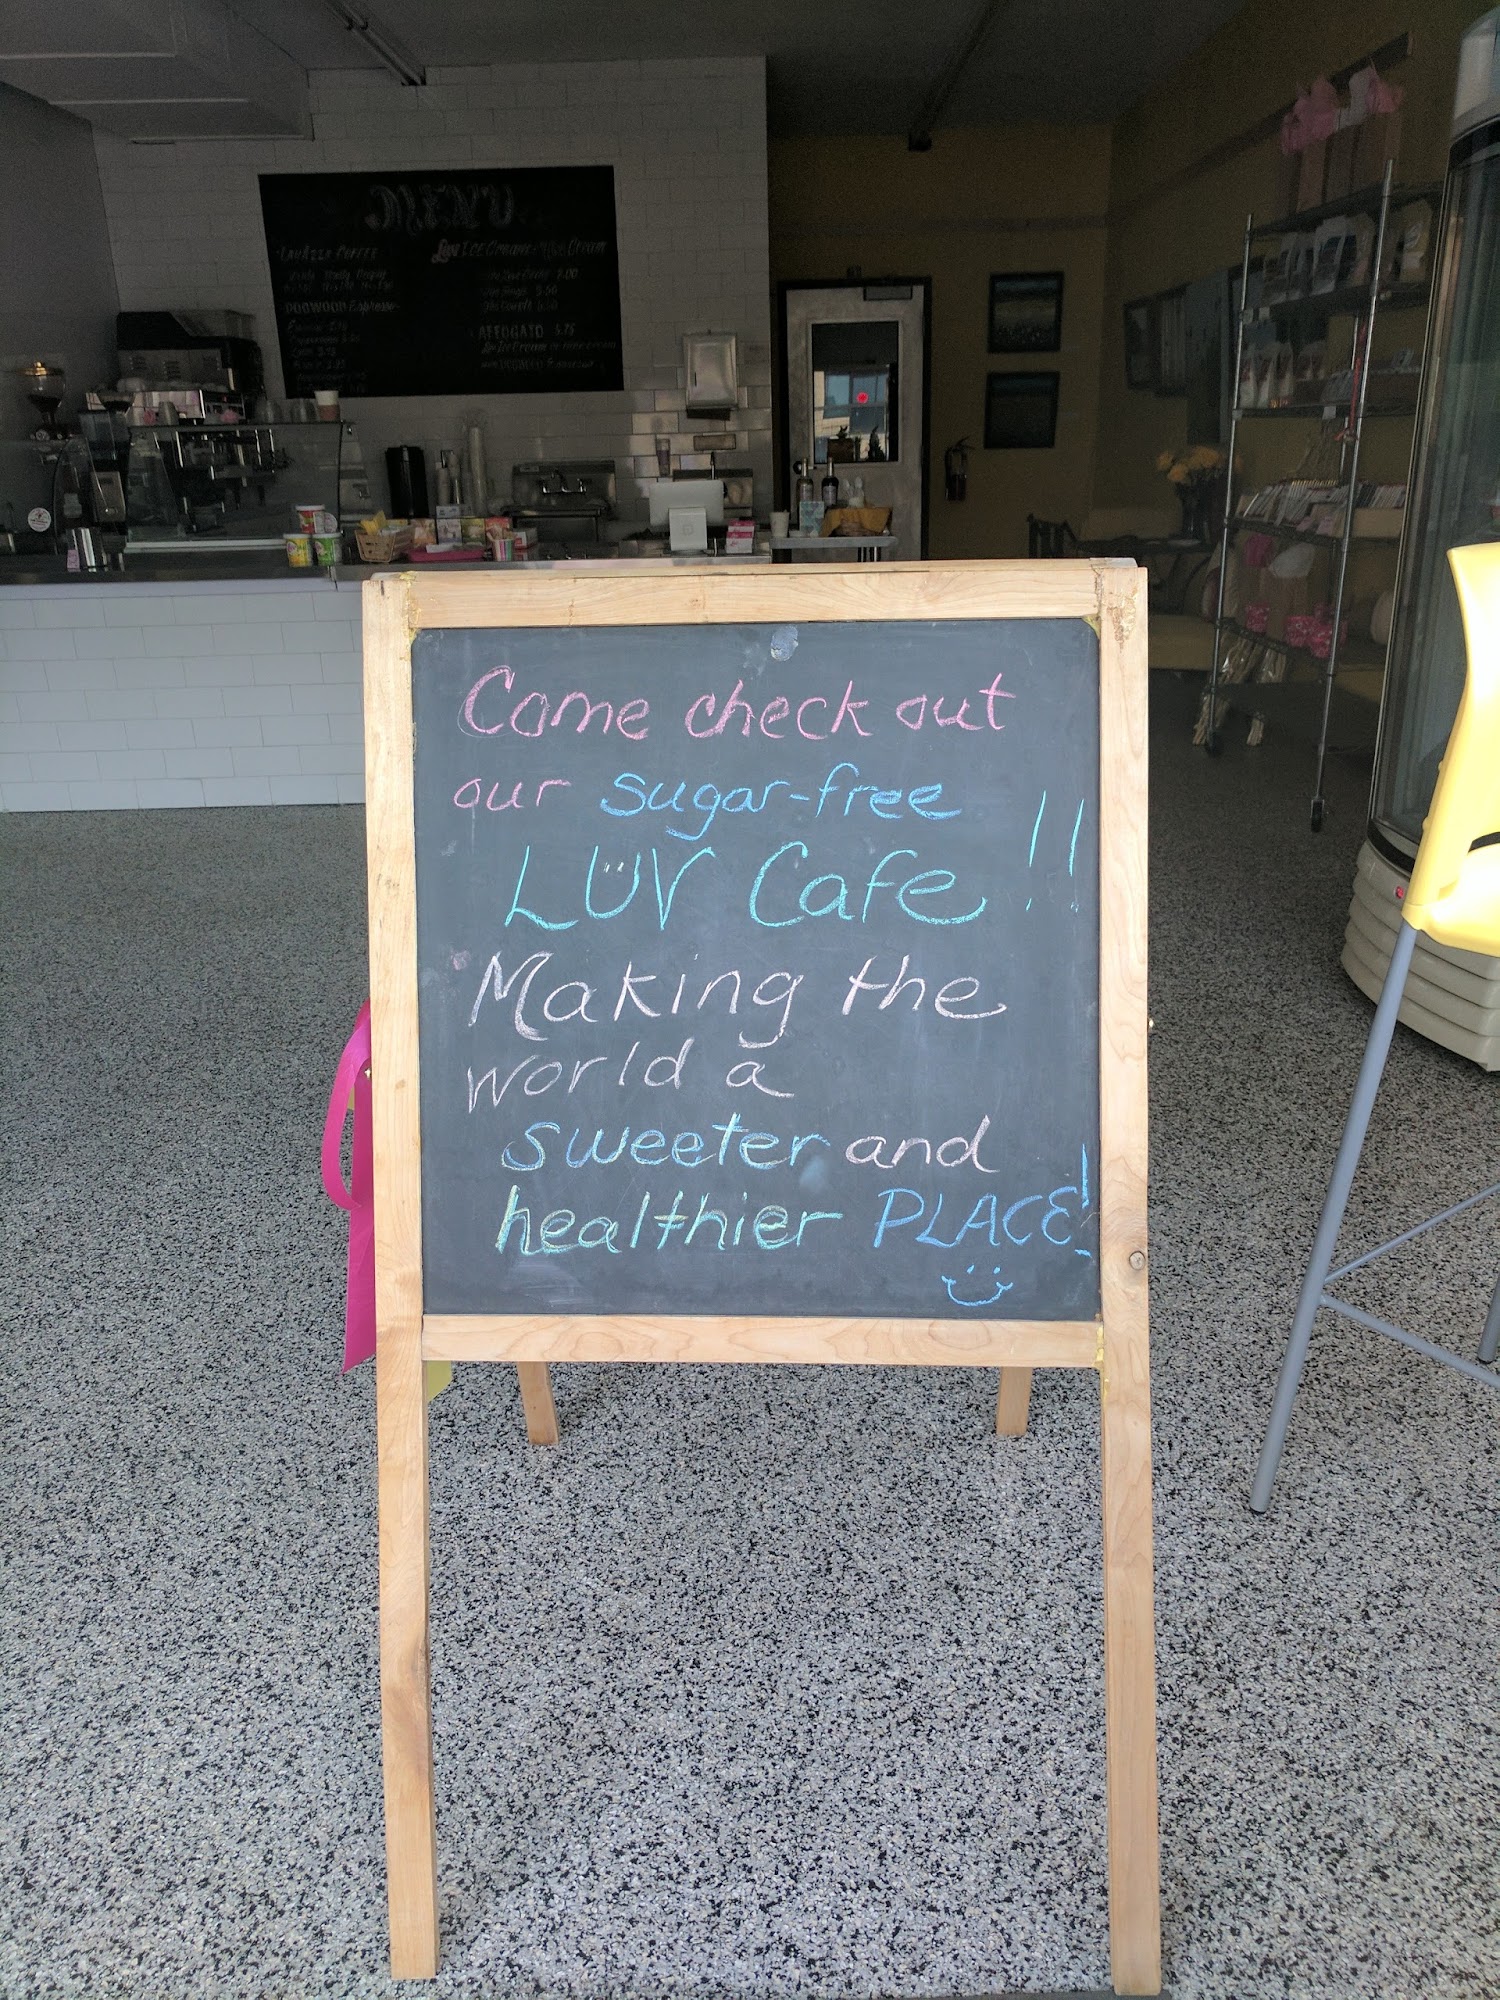 MENU
LAVAZZA COFFEE
DOGWOOD Espresso
AFFOGATO 5.75
Come check out
our sugar-free
LÜV Cafe!!
Making the
world a
sweeter and
healthier PLACE!